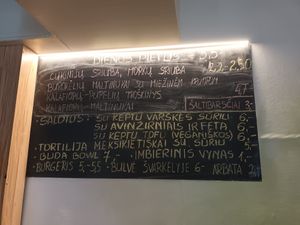 DIENOS PIETŪS
CUKINIJŲ SRIUBA, MORKŲ SRIUBA 2,2-2,50
BUROKĖLIŲ MALTINUKAI SU MIEŽINĖM KRUOPOM
KALAFIORŲ-PUPELIŲ TROŠKINYS 4,7
KALAFIORŲ MALTINUKAI
ŠALTIBARŠČIAI 3,-
SALOTOS: SU KEPTU VARŠKĖS SŪRIU 6,-
SU AVINŽIRNIAIS IR FETA 6,-
SU KEPTU TOFU (VEGANIŠKOS) 6,-
TORTILIJA MEKSIKIETIŠKAI SU SŪRIU 5,-
BUDA BOWL 7,- IMBIERINIS VYNAS 1,-
BURGERIS 5,-5,5 BULVĖ ŠVARKELYJE 6- ARBATA